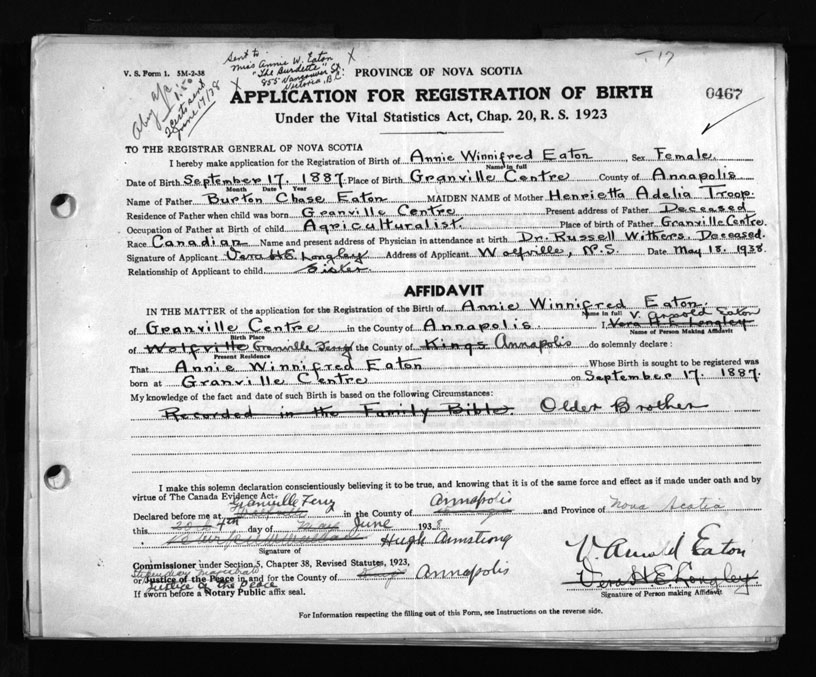 V. S. Form 1. 5M-2-38
Sent to
Miss Annie W. Eaton
"The Burdette"
855 Vancouver St
Victoria, B.C.
1.50
2 certs sent
June 17/38
T 17
PROVINCE OF NOVA SCOTIA
APPLICATION FOR REGISTRATION OF BIRTH
0467
Under the Vital Statistics Act, Chap. 20, R. S. 1923
TO THE REGISTRAR GENERAL OF NOVA SCOTIA
I hereby make application for the Registration of Birth of Annie Winnifred Eaton Sex Female
Name in full
Date of Birth September 17, 1887. Place of Birth Granville Centre County of Annapolis
Month Date Year
Name of Father Burton Chase Eaton MAIDEN NAME of Mother Henrietta Adelia Troop.
Residence of Father when child was born Granville Centre Present address of Father Deceased
Occupation of Father at Birth of child Agriculturalist. Place of birth of Father Granville Centre.
Race Canadian Name and present address of Physician in attendance at birth Dr. Russell Withers. Deceased.
Signature of Applicant Vera H E. Longley Address of Applicant Wolfville, N.S. Date May 18. 1938.
Relationship of Applicant to child Sister
AFFIDAVIT
IN THE MATTER of the application for the Registration of the Birth of Annie Winnifred Eaton.
Name in full
V. Arnold Eaton
of Granville Centre in the County of Annapolis. I, Vera H E Longley
Birth Place Name of Person Making Affidavit
of Wolfville Granville Ferry the County of Kings Annapolis do solemnly declare :
Present Residence
That Annie Winnifred Eaton Whose Birth is sought to be registered was
born at Granville Centre on September 17. 1887.
My knowledge of the fact and date of such Birth is based on the following Circumstances:
Recorded in the Family Bible Older Brother
I make this solemn declaration conscientiously believing it to be true, and knowing that it is of the same force and effect as if made under oath and by
virtue of The Canada Evidence Act.
Granville Ferry Annapolis
Declared before me at in the County of and Province of Nova Scotia
this 20th 4th day of May June 1938
Hugh Armstrong
Signature of
V. Arnold Eaton
Commissioner under Section 5, Chapter 38, Revised Statutes, 1923,
Stipendiary Magistrate
or Justice of the Peace in and for the County of Kings Annapolis
Justice of the Peace
Vera H. E. Longley.
If sworn before a Notary Public affix seal.
Signature of Person making Affidavit
For Information respecting the filling out of this Form, see Instructions on the reverse side.